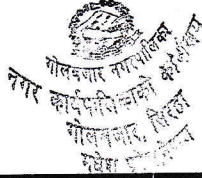 गोलबजार नगरपालिका
नगर कार्यपालिकाको कार्यालय
गोलबजार, सिरहा